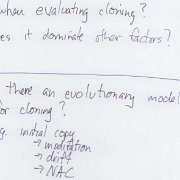 when evaluating cloning?
es it dominate other factors?
there an evolutionary model
for cloning?
g. initial copy
→ meditation
→ drift
→ NAC